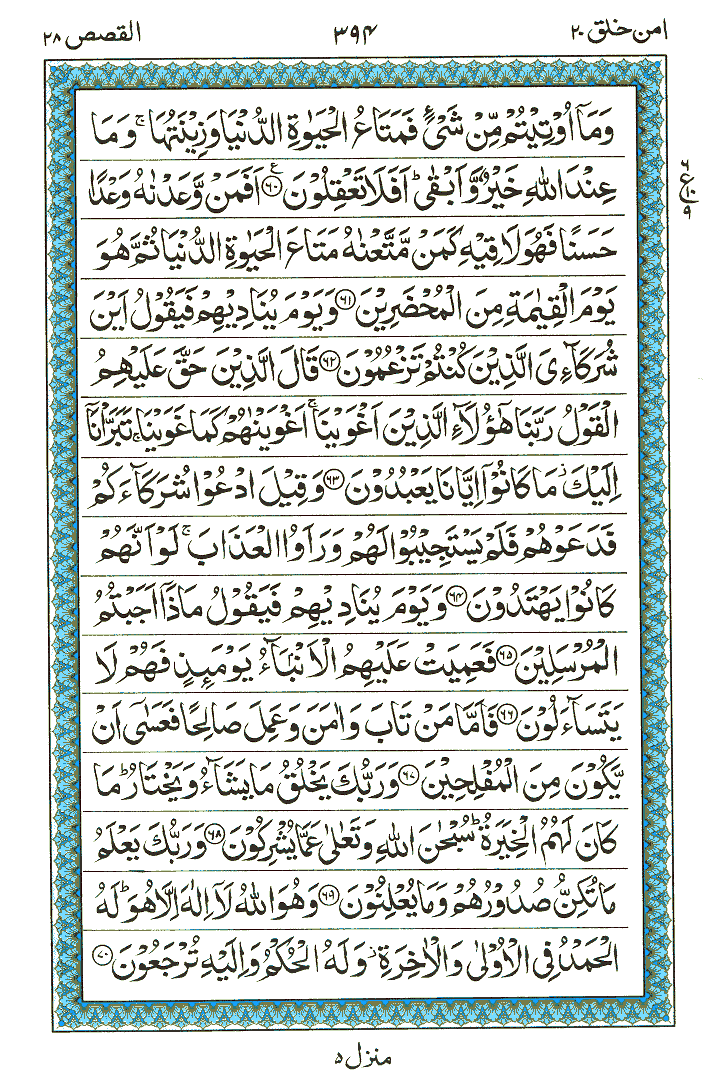 امن خلق ۲۰ ۳۹۴ القصص ۲۸
وَمَاۤ اُوْتِيْتُمْ مِّنْ شَیْءٍ فَمَتَاعُ الْحَيٰوةِ الدُّنْيَا وَزِيْنَتُهَا ۚ وَمَا
عِنْدَ اللّٰهِ خَيْرٌ وَّاَبْقٰى ؕ اَفَلَا تَعْقِلُوْنَ ﴿۶۰﴾ ع اَفَمَنْ وَّعَدْنٰهُ وَعْدًا
حَسَنًا فَهُوَ لَاقِيْهِ كَمَنْ مَّتَّعْنٰهُ مَتَاعَ الْحَيٰوةِ الدُّنْيَا ثُمَّ هُوَ
يَوْمَ الْقِيٰمَةِ مِنَ الْمُحْضَرِيْنَ ﴿۶۱﴾ وَيَوْمَ يُنَادِيْهِمْ فَيَقُوْلُ اَيْنَ
شُرَكَآءِیَ الَّذِيْنَ كُنْتُمْ تَزْعُمُوْنَ ﴿۶۲﴾ قَالَ الَّذِيْنَ حَقَّ عَلَيْهِمُ
الْقَوْلُ رَبَّنَا هٰۤؤُلَآءِ الَّذِيْنَ اَغْوَيْنَا ۚ اَغْوَيْنٰهُمْ كَمَا غَوَيْنَا ۚ تَبَرَّاْنَاۤ
اِلَيْكَ ؗ مَا كَانُوْۤا اِيَّانَا يَعْبُدُوْنَ ﴿۶۳﴾ وَقِيْلَ ادْعُوْا شُرَكَآءَكُمْ
فَدَعَوْهُمْ فَلَمْ يَسْتَجِيْبُوْا لَهُمْ وَرَاَوُا الْعَذَابَ ۚ لَوْ اَنَّهُمْ
كَانُوْا يَهْتَدُوْنَ ﴿۶۴﴾ وَيَوْمَ يُنَادِيْهِمْ فَيَقُوْلُ مَاذَاۤ اَجَبْتُمُ
الْمُرْسَلِيْنَ ﴿۶۵﴾ فَعَمِيَتْ عَلَيْهِمُ الْاَنْۢبَآءُ يَوْمَئِذٍ فَهُمْ لَا
يَتَسَآءَلُوْنَ ﴿۶۶﴾ فَاَمَّا مَنْ تَابَ وَاٰمَنَ وَعَمِلَ صَالِحًا فَعَسٰۤى اَنْ
يَّكُوْنَ مِنَ الْمُفْلِحِيْنَ ﴿۶۷﴾ وَرَبُّكَ يَخْلُقُ مَا يَشَآءُ وَيَخْتَارُ ؕ مَا
كَانَ لَهُمُ الْخِيَرَةُ ؕ سُبْحٰنَ اللّٰهِ وَتَعٰلٰى عَمَّا يُشْرِكُوْنَ ﴿۶۸﴾ وَرَبُّكَ يَعْلَمُ
مَا تُكِنُّ صُدُوْرُهُمْ وَمَا يُعْلِنُوْنَ ﴿۶۹﴾ وَهُوَ اللّٰهُ لَاۤ اِلٰهَ اِلَّا هُوَ ؕ لَهُ
الْحَمْدُ فِی الْاُوْلٰى وَالْاٰخِرَةِ ؗ وَلَهُ الْحُكْمُ وَاِلَيْهِ تُرْجَعُوْنَ ﴿۷۰﴾
۶
ع ۱۰
۹
منزل ۵